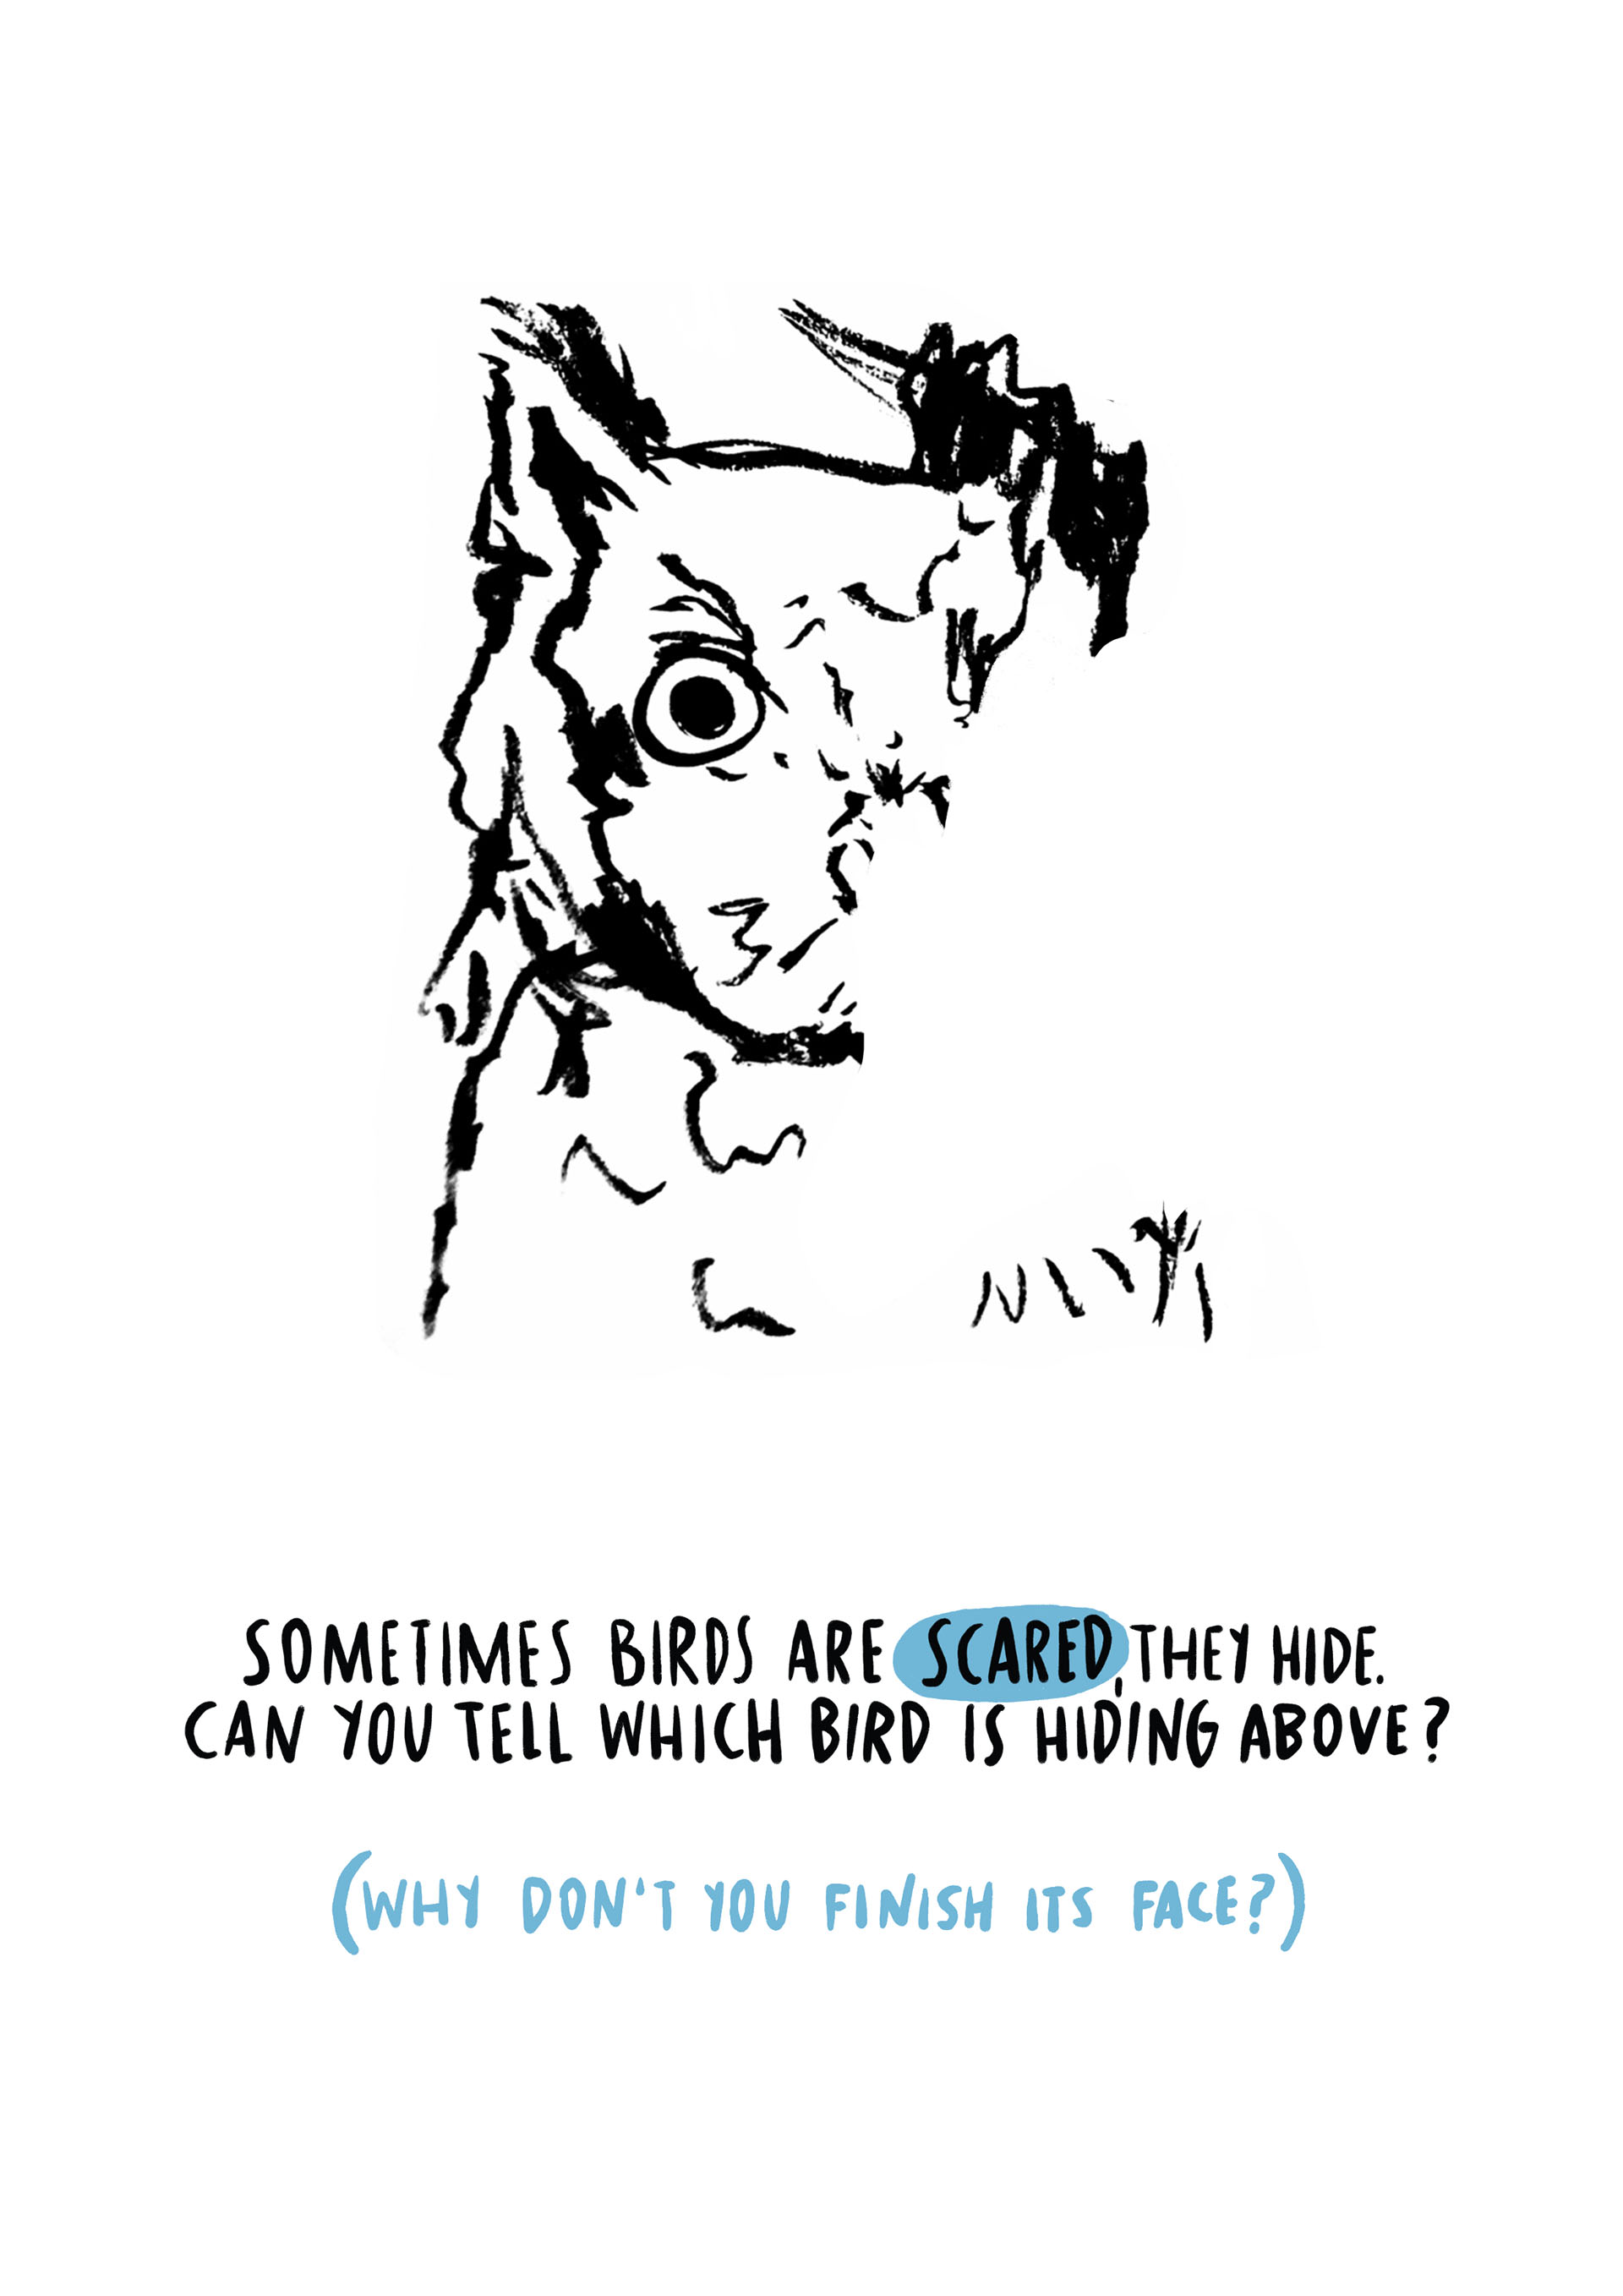 SOMETIMES BIRDS ARE SCARED, THEY HIDE.
CAN YOU TELL WHICH BIRD IS HIDING ABOVE?
(WHY DON'T YOU FINISH ITS FACE?)